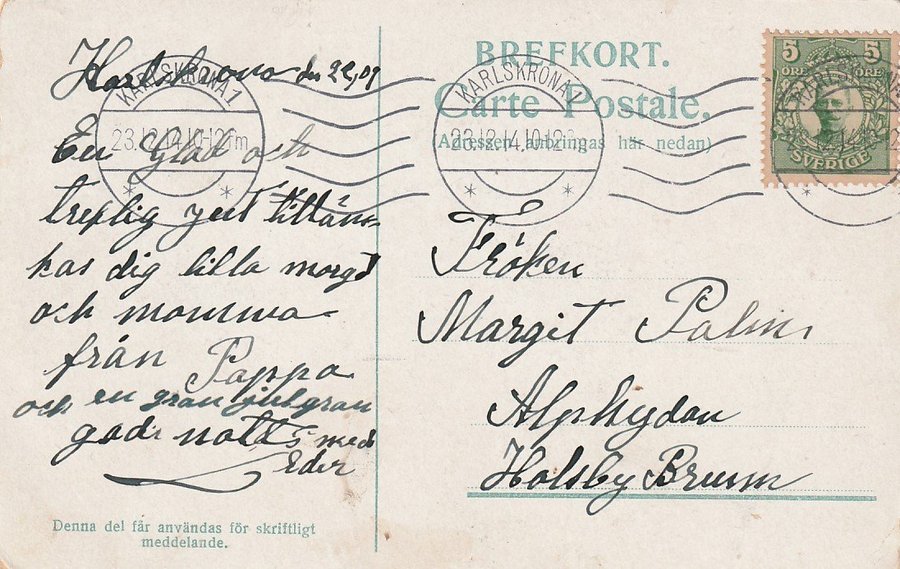 Karlskrona den
KARLSKRONA 1
23.12.14.10-12 fm
En Glad och
treflig jul tilläns-
kas dig lilla morgt
och momma
från Pappa
och en gran julgran
god natt med
Eder
Denna del får användas för skriftligt
meddelande.
BREFKORT.
Carte Postale.
(Adressen anbringas här nedan)
KARLSKRONA 1
23.12.14.10-12
5 5
ÖRE ÖRE
SVERIGE
Fröken
Margit Palm
Alphyddan
Holsby Brunn